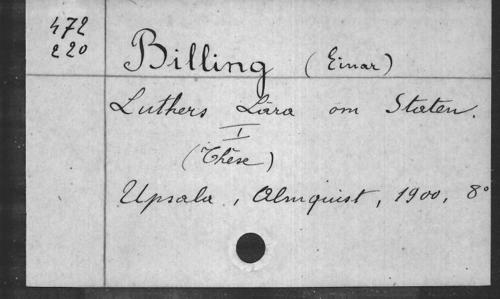 472
220
Billing (Einar)
Luthers Lära om Staten.
I
(Thèse)
Upsala, Almquist, 1900, 8°